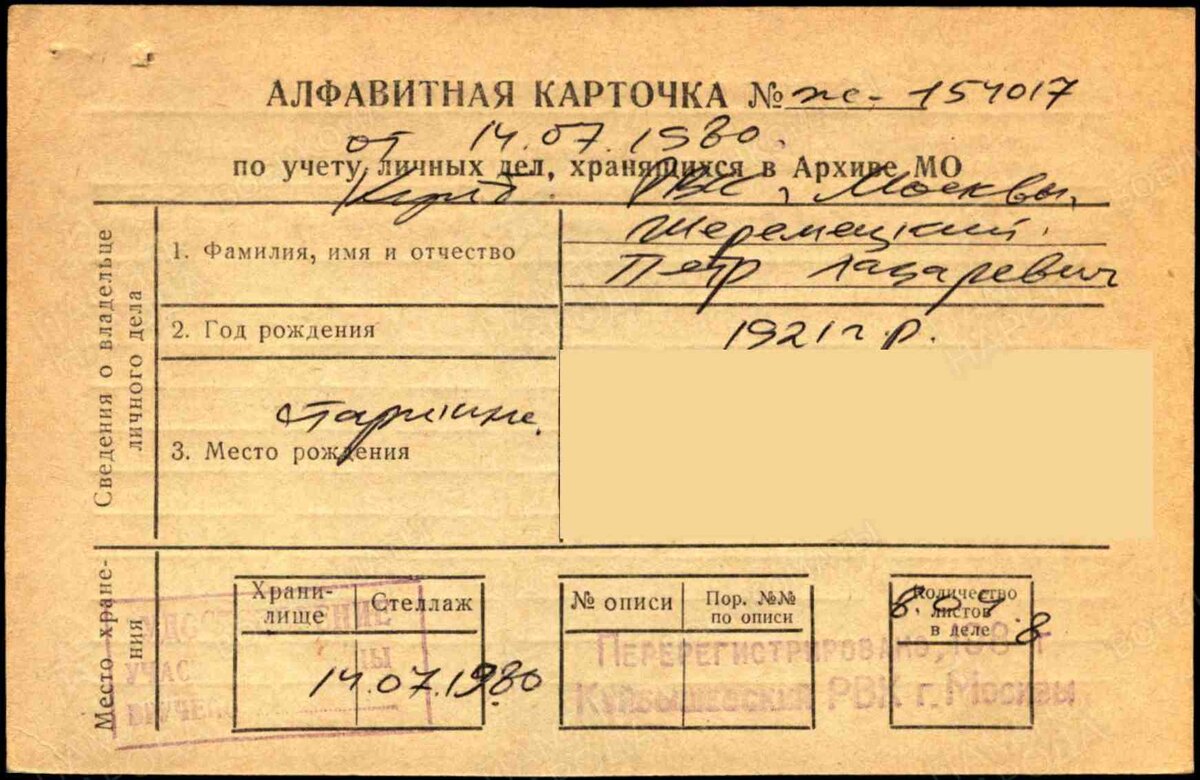 АЛФАВИТНАЯ КАРТОЧКА № ж- 154017
от 14.07.1980.
по учету личных дел, хранящихся в Архиве МО
РВК г. Москвы.
Сведения о владельце личного дела
1. Фамилия, имя и отчество
Шеремецкий.
Петр Лазаревич
2. Год рождения
1921 г.р.
старшина.
3. Место рождения
Место хране-
ния
Храни-
лище
Стеллаж
№ описи
Пор. №№
по описи
Количество
листов
в деле
14.07.1980
УДОСТ ЕНИЕ
УЧАС
ВРУЧЕ
Перерегистрировано, 198 г.
Куйбышевский РВК г. Москвы